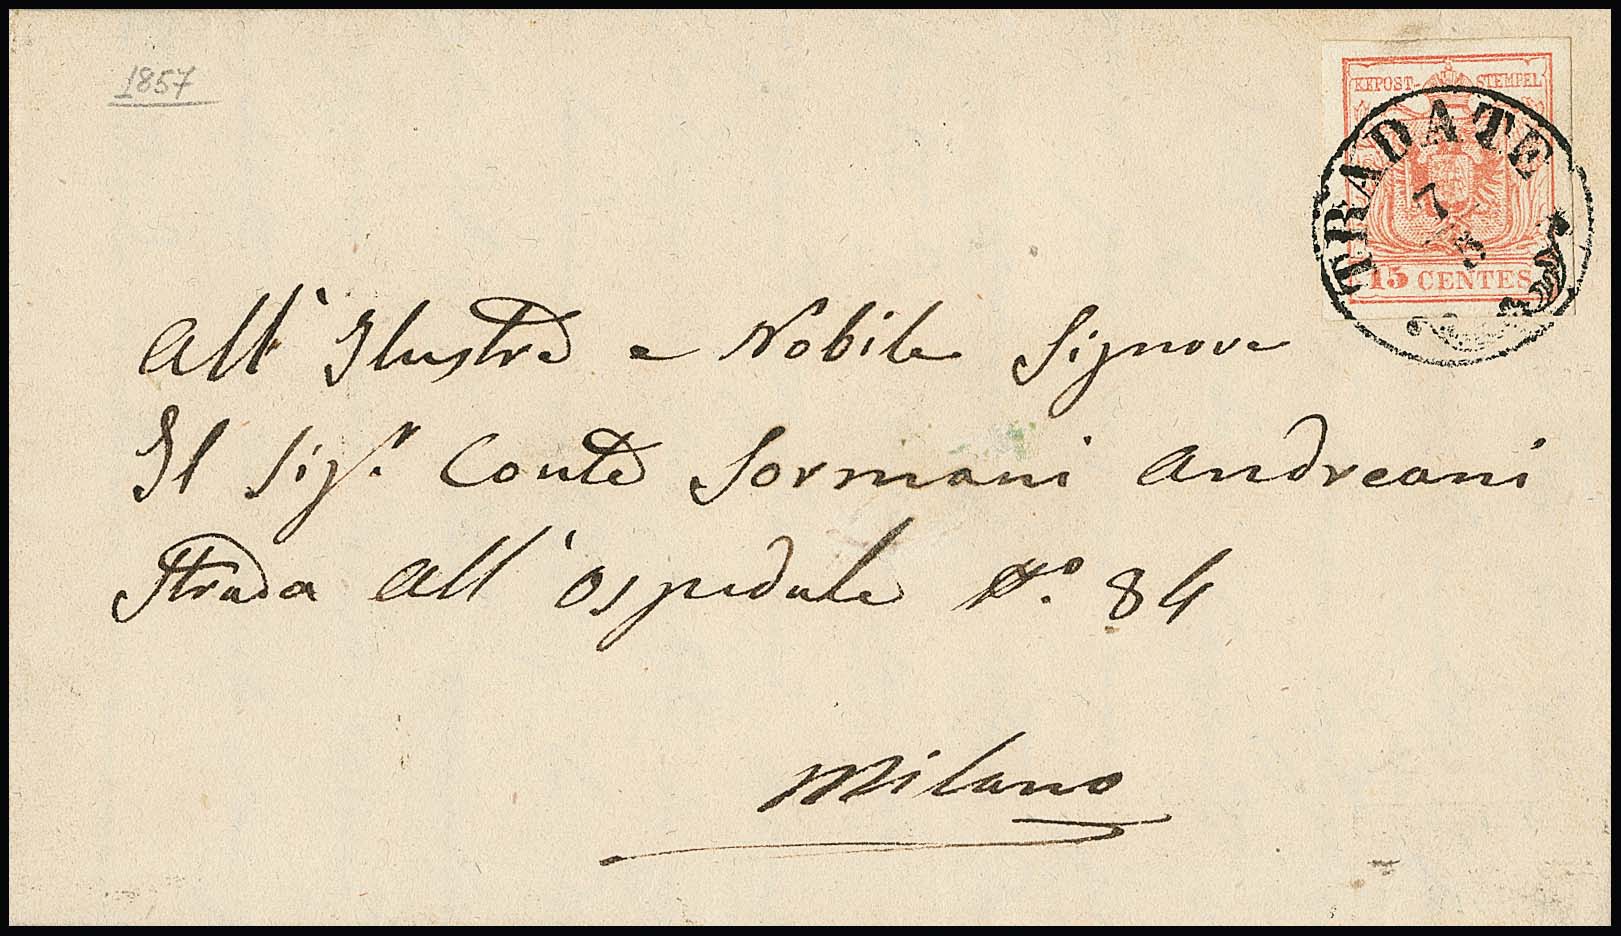 1857
KKPOST-STEMPEL
TRADATE
7
15 CENTES.
All' Ilustre e Nobile Signore
Il Sigr. Conte Sormani Andreani
Strada all' Ospedale No. 84
Milano